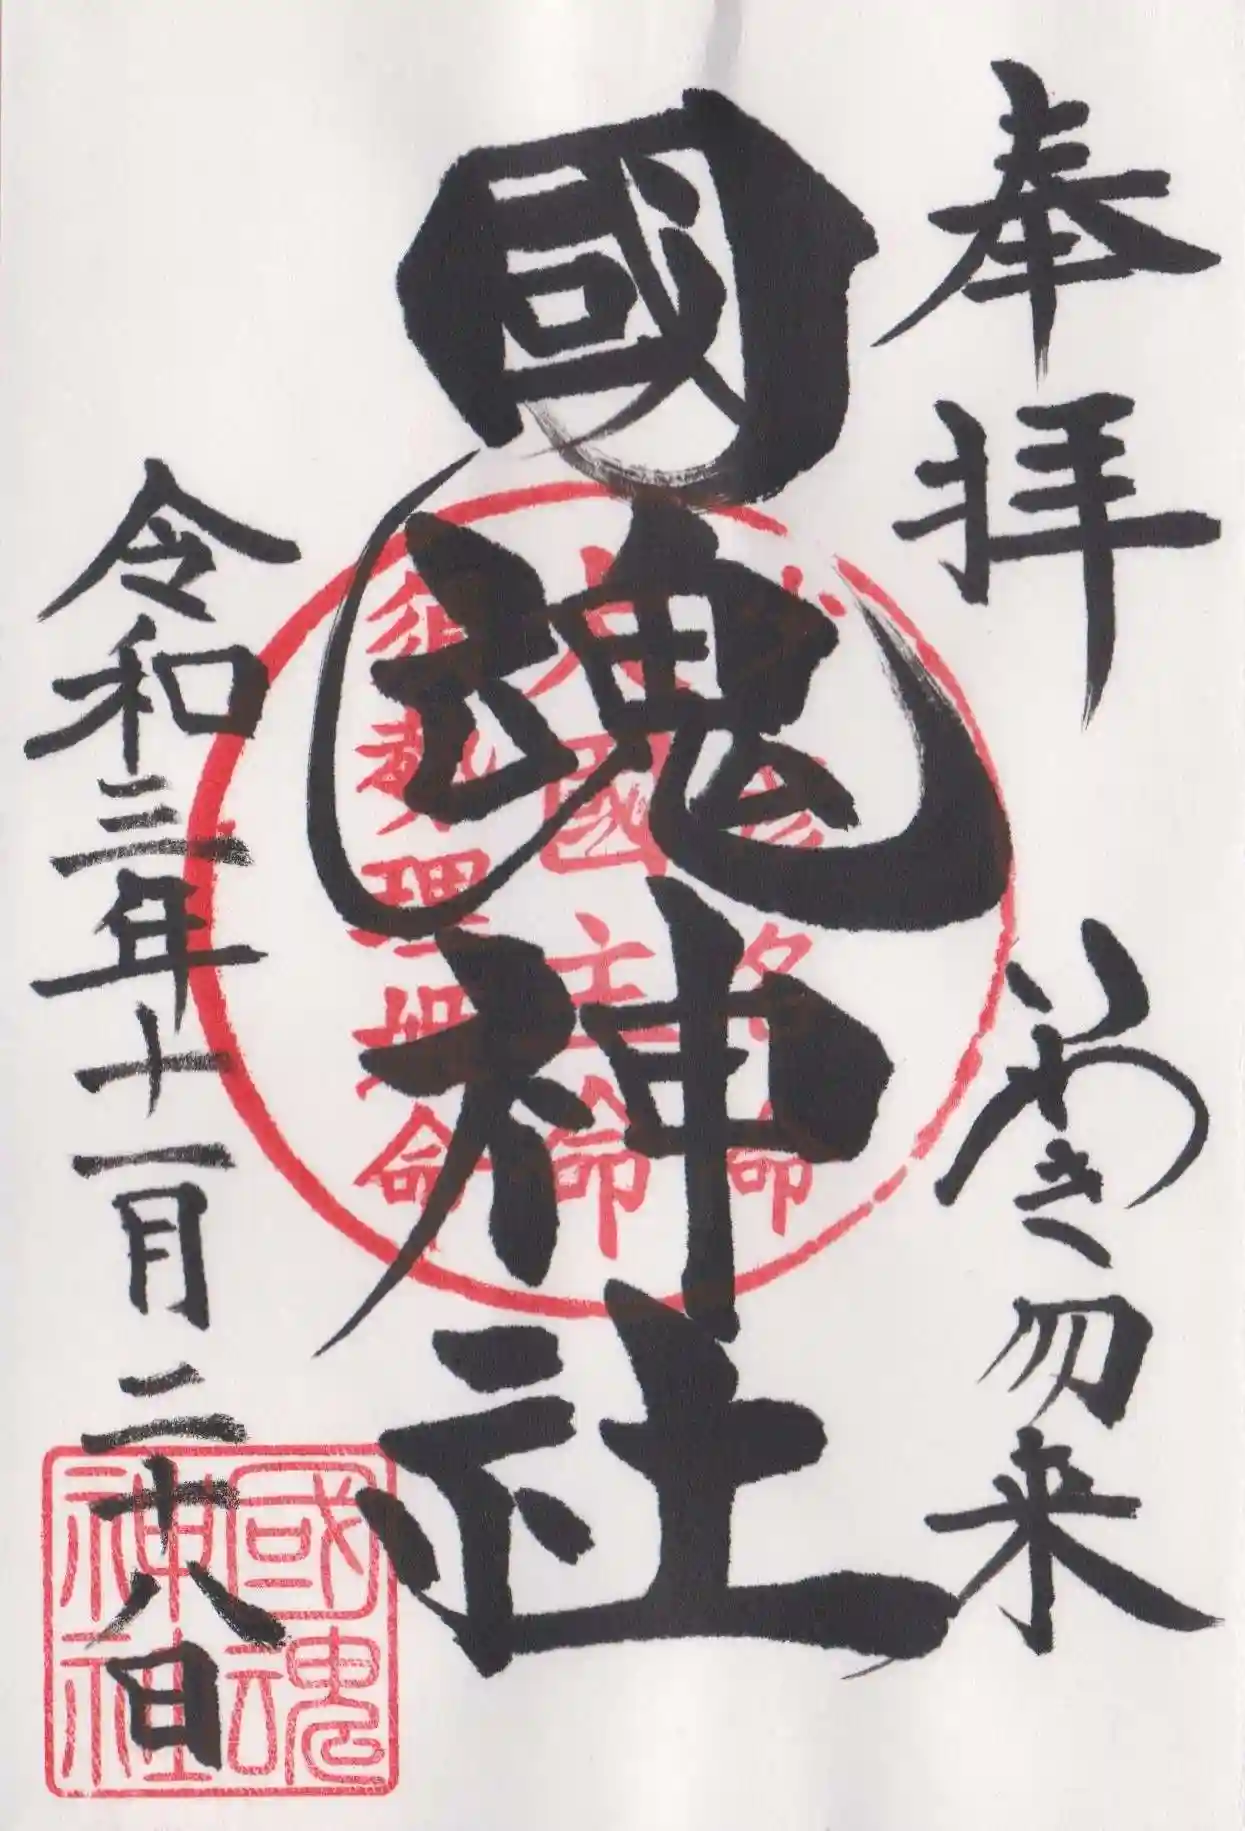 奉拝
いわき勿来
國魂神社
大國主命
須勢理姫命
令和三年十一月二十八日
國魂神社